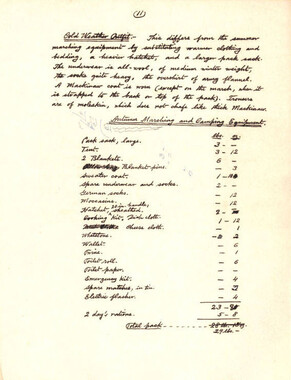 (11)
Cold Weather Outfit. This differs from the summer
marching equipment by substituting warmer clothing and
bedding, a heavier hatchet, and a larger pack sack.
The underwear is all-wool, of medium winter weight,
the socks quite heavy, the overshirt of army flannel.
A Mackinaw coat is worn (except on the march, when it
is strapped to the back on top of the pack). Trousers
are of moleskin, which does not chafe like thick Mackinaw.
Autumn Marching and Camping Equipment.
lbs. oz.
Pack sack, large. 3 -
Tent. 3 - 12
2 Blankets. 6 -
Blanket-pins. - 1
Sweater coat. 1 -
Spare underwear and socks. 2 -
German socks. - 12
Moccasins. - 12
Hatchet, 18 in handle,
sheathed.
Cooking kit, dish cloth. 1 - 12
Cheese cloth. - 1
Whetstone. - 2
Wallet. - 6
Twine. - 1
Toilet-roll. - 6
Toilet-paper. - 1
Emergency kit. - 4
Spare matches, in tin.
Electric flasher. - 4
23 -
2 day's rations. 5 - 8
Total pack
29 lbs. -